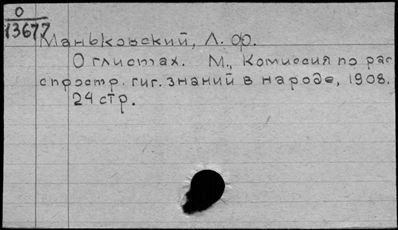 О
13677
Маньковский, Л. Ф.
О глистах. М., Комиссия по рас
простр. гиг. знаний в народе, 1908.
24 стр.